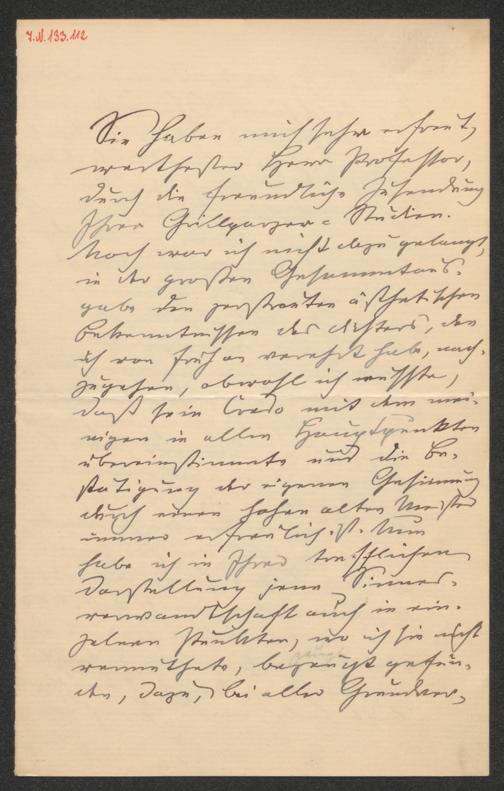 I.N. 133.112
Sie haben mich sehr erfreut,
werthester Herr Professor,
durch die freundliche Zusendung
Ihrer Grillparzer-Studien.
Noch war ich nicht dazu gelangt,
in der großen Gesammtaus-
gabe den zerstreuten ästhetischen
Bekenntnissen des Dichters, den
ich von früh an verehrt habe, nach-
zugehen, obwohl ich wußte,
daß sein Credo mit dem mei-
nigen in allen Hauptpunkten
übereinstimmte und die Be-
stätigung der eigenen Gesinnung
durch einen hohen alten Meister
immer erfreulich ist. Nun
habe ich in Ihrer trefflichen
Darstellung jene Sinnes-
verwandtschaft auch in ein-
zelnen Punkten, wo ich sie nicht
vermuthete, bezeugt gefun-
den, dazu, bei aller Grundver-